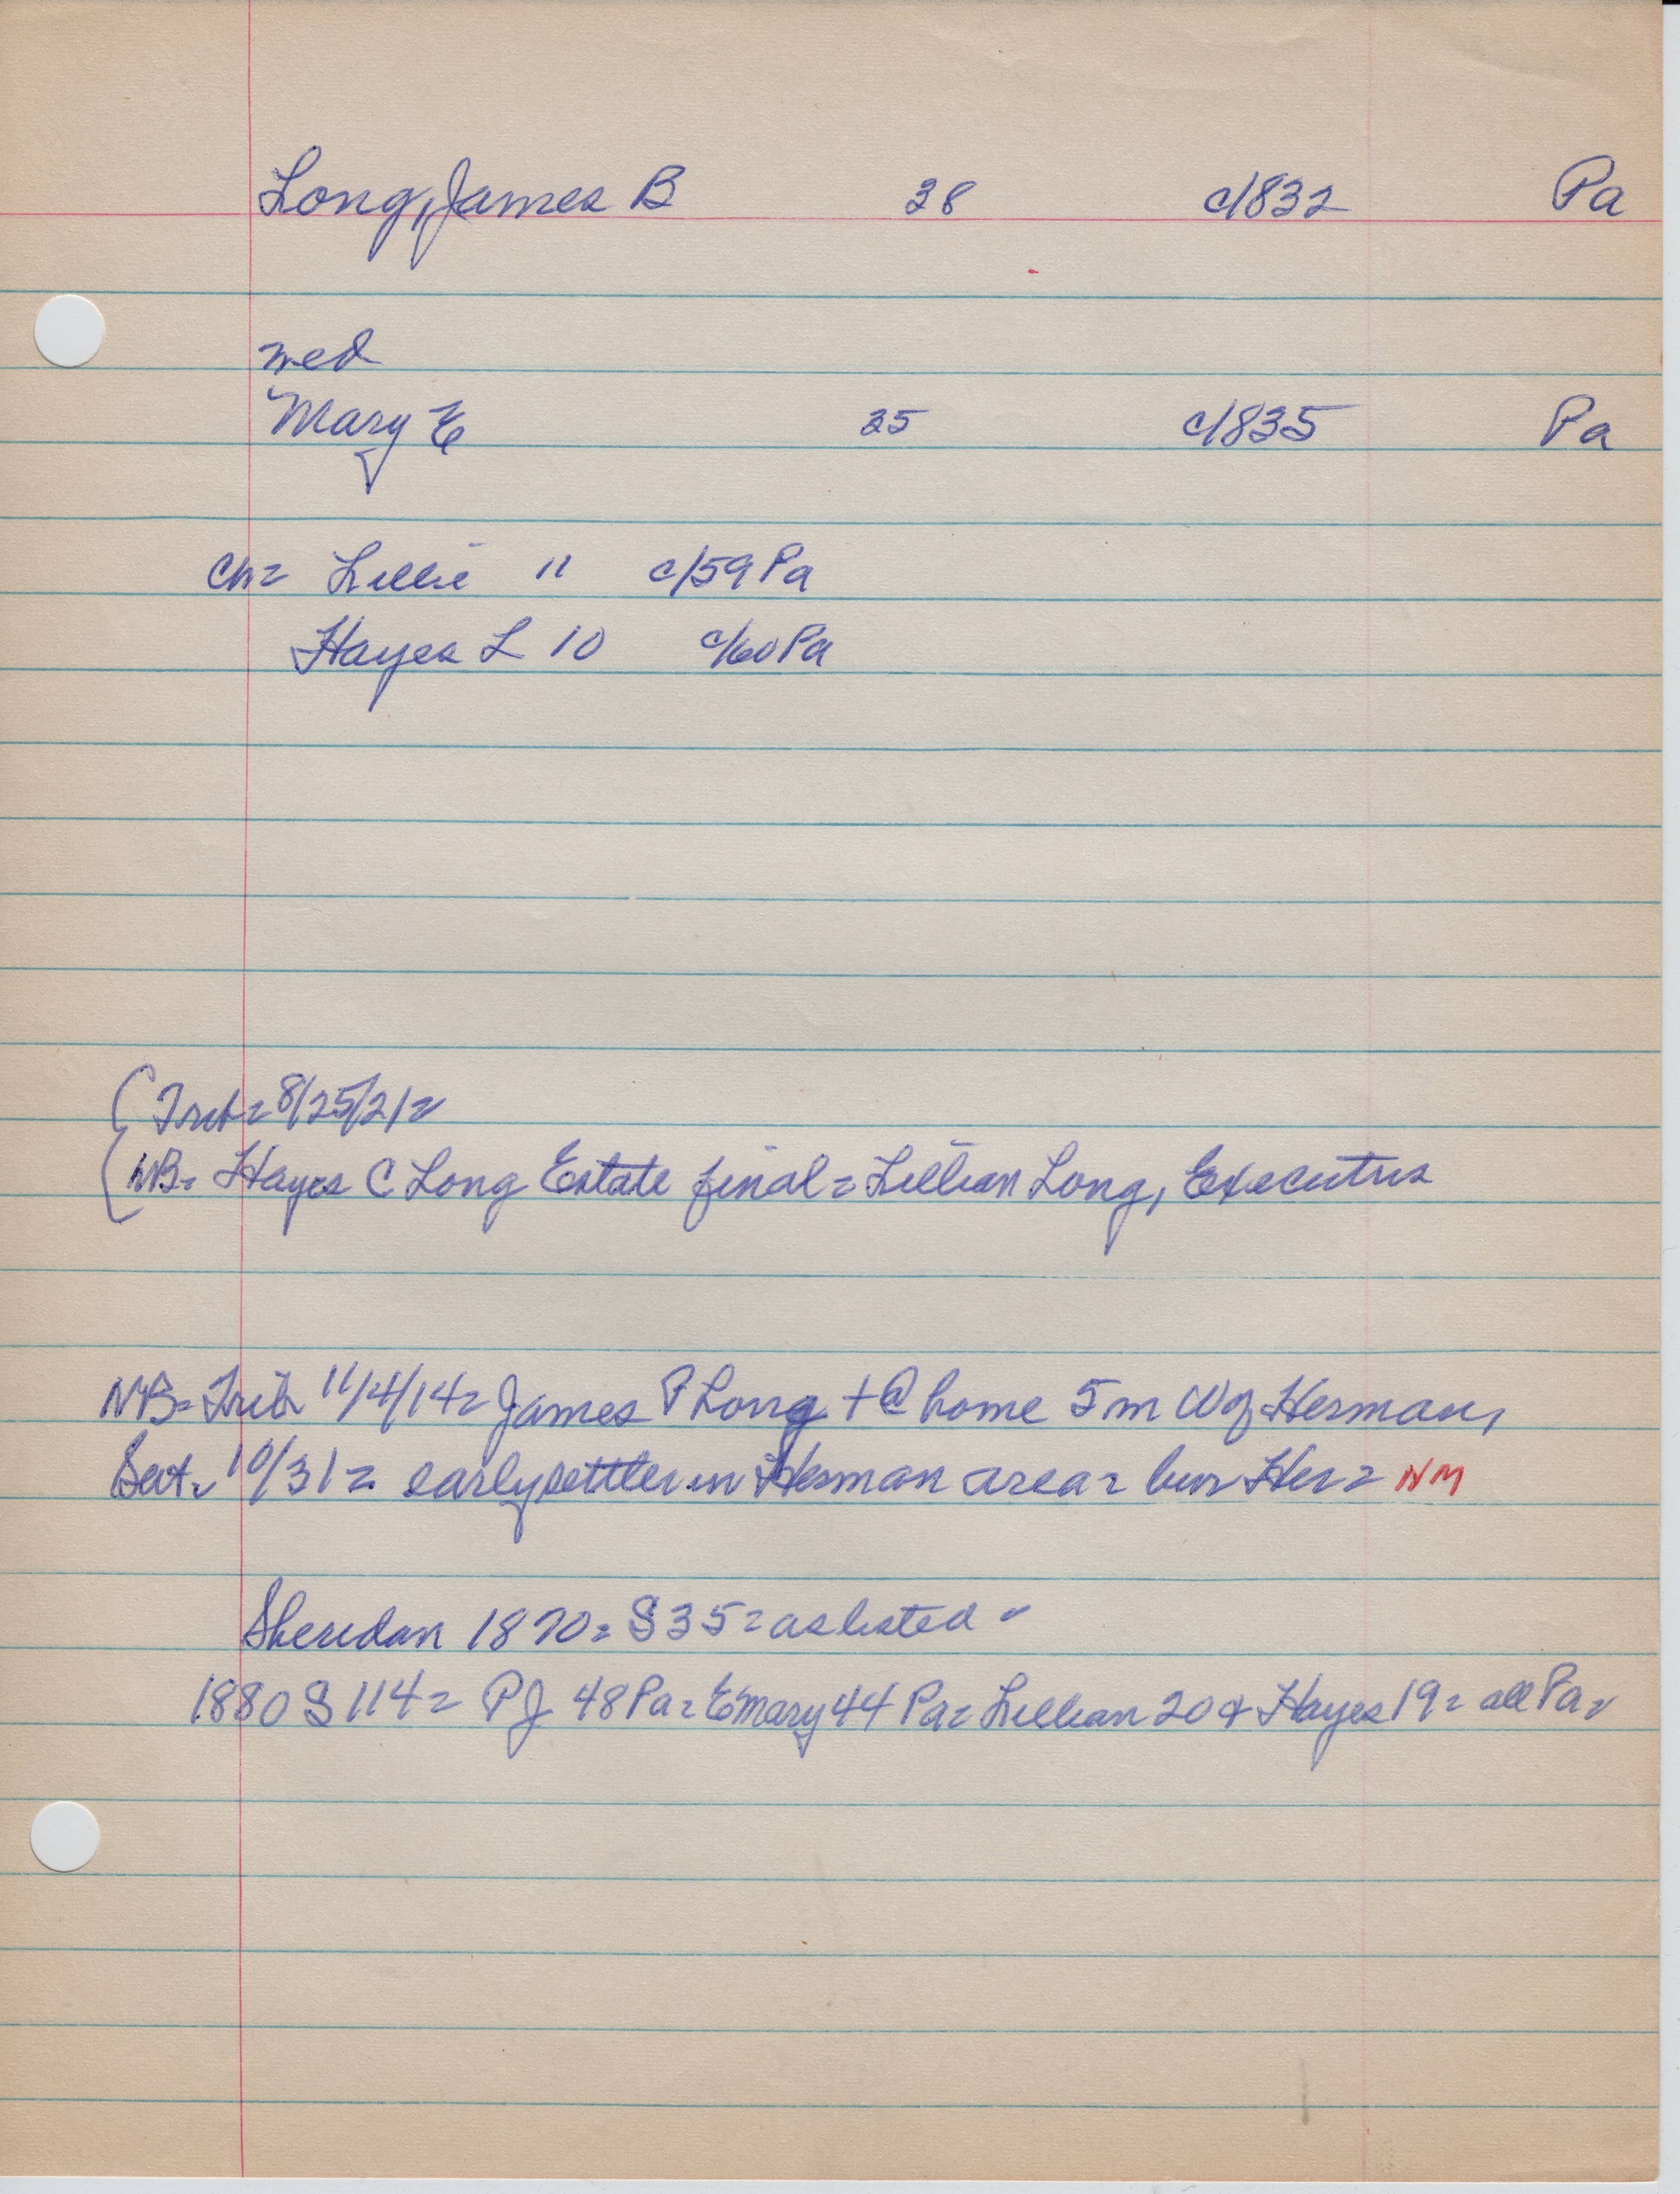 Long, James B 38 c/1832 Pa
wed
Mary E 35 c/1835 Pa
ch= Lillie 11 c/59 Pa
Hayes L 10 c/60 Pa
Trib= 8/25/21=
NB= Hayes C Long Estate final= Lillian Long, Executrix
NB= Trib 11/4/14= James P Long + @ home 5 m W of Herman,
Sat. 10/31= early settler in Herman area= bur Her= NM
Sheridan 1870= S35= as listed=
1880 S 114= P J 48 Pa= E Mary 44 Pa= Lillian 20 & Hayes 19= all Pa=